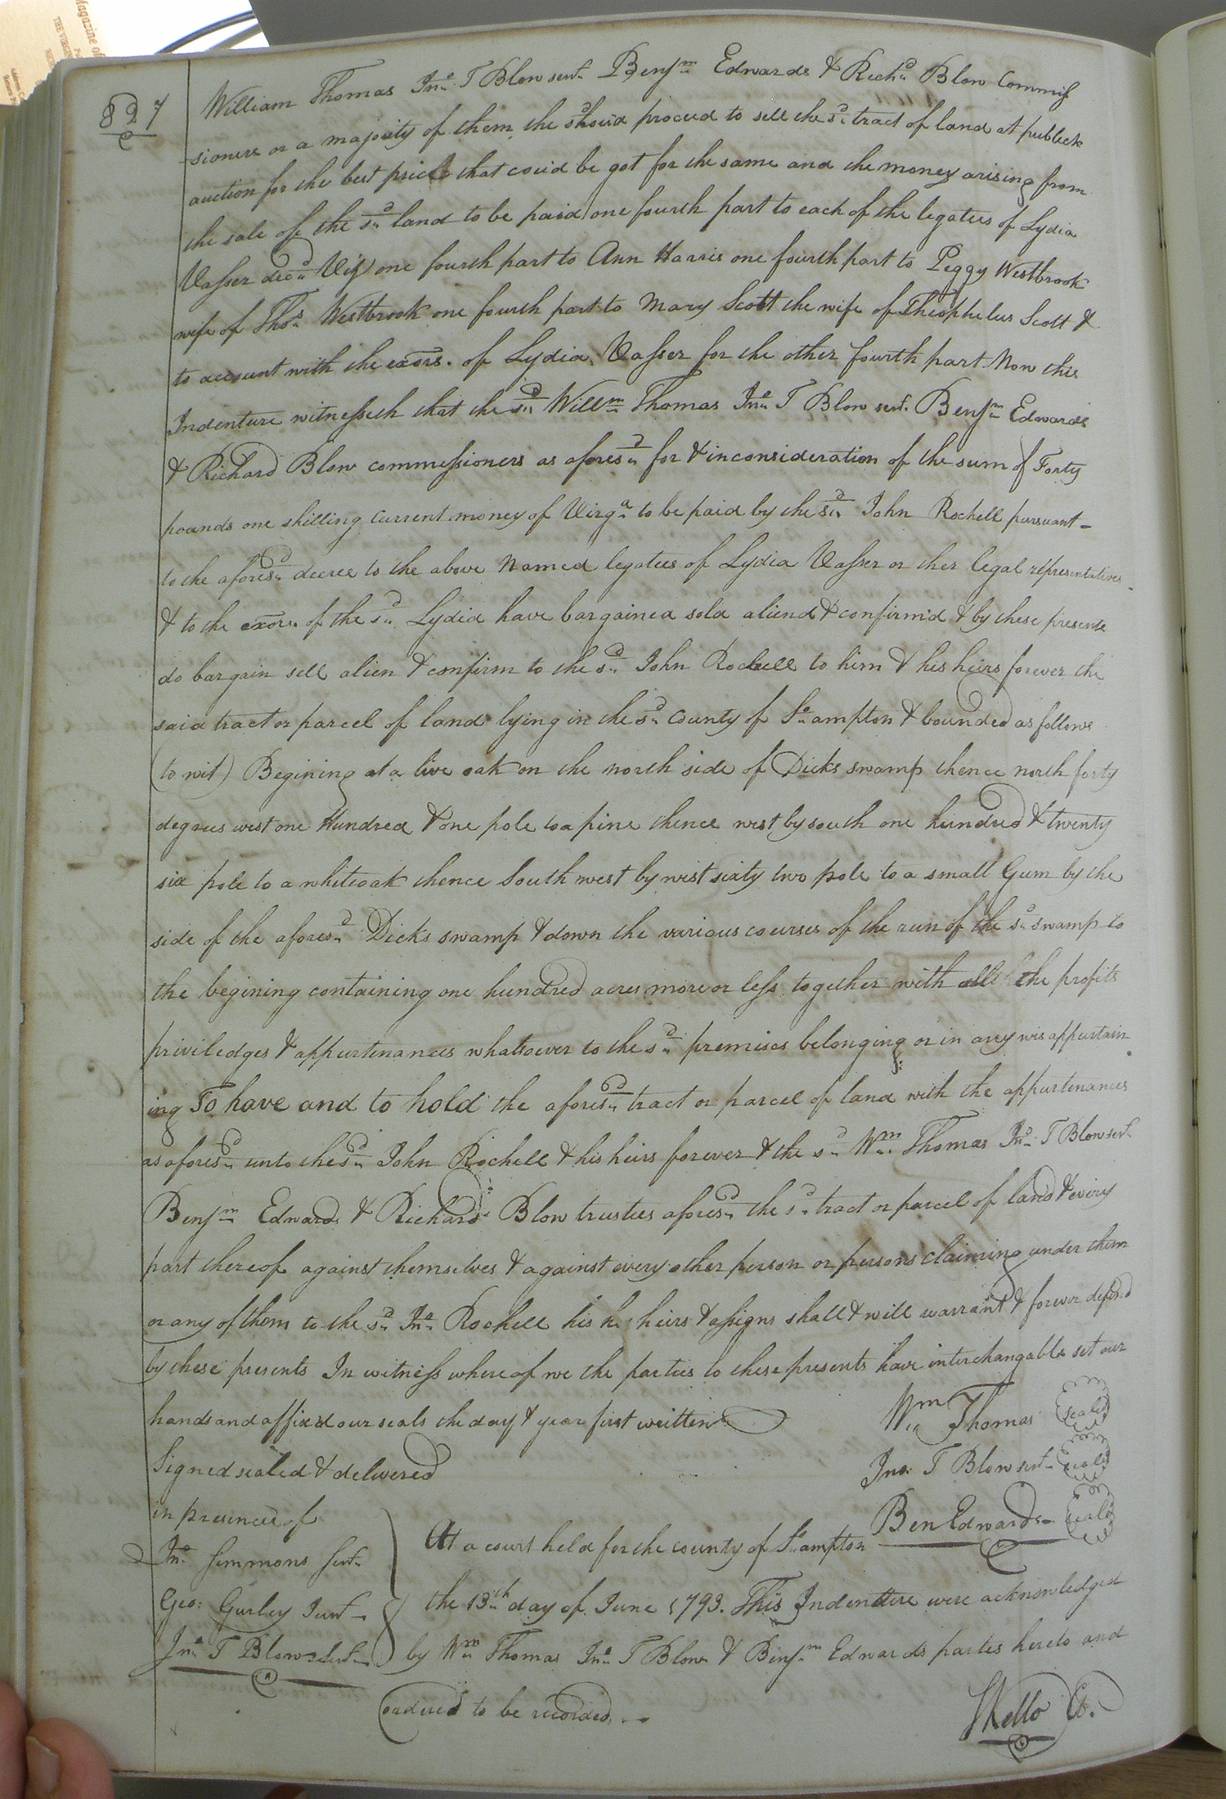 827
William Thomas Jno. T Blow senr. Benjm. Edwards & Richd. Blow Commis
sioners or a majority of them the should proceed to sell the sd. tract of land at publick
auction for the best price that could be got for the same and the money arising from
the sale of the sd. land to be paid one fourth part to each of the legatees of Lydia
Vasser decd. Viz) one fourth part to Ann Harris one fourth part to Peggy Westbrook
wife of Thos. Westbrook one fourth part to Mary Scott the wife of Theophelus Scott &
to account with the exors. of Lydia Vasser for the other fourth part Now this
Indenture witnesseth that the sd. Willm. Thomas Jno. T Blow senr. Benjm. Edwards
& Richard Blow commissioners as aforesd. for & in consideration of the sum of Forty
pounds one shilling current money of Virga. to be paid by the sd. John Rochell pursuant
to the aforesd. decree to the above Named legatees of Lydia Vasser or ther legal representatives
& to the exors. of the sd. Lydia have bargained sold aliend & confirm'd & by these presents
do bargain sell alien & confirm to the sd. John Rochell to him & his heirs forever the
said tract or parcel of land lying in the sd. county of So.ampton & bounded as follows
(to wit) Begining at a live oak on the north side of Dicks swamp thence north forty
degrees west one Hundred & one pole to a pine thence west by south one hundred & twenty
six pole to a whiteoak thence South west by west sixty two pole to a small Gum by the
side of the aforesd. Dicks swamp & down the various courses of the run of the sd. swamp to
the begining containing one hundred acres more or less together with all the profits
priviledges & appurtenances whatsoever to the sd. premises belonging or in any wis appurtain
ing To have and to hold the aforesd. tract or parcel of land with the appurtenances
as aforesd. unto the sd. John Rochell & his heirs forever & the sd. Wm. Thomas Jno. T Blow senr.
Benjm. Edwards & Richard Blow trusties aforesd. the sd. tract or parcel of land & every
part thereof against themselves & against every other person or persons claiming under them
or any of them to the sd. Jno. Rochell his h heirs & assigns shall & will warrant & forever defend
by these presents In witness where of we the parties to these presents have interchangable set our
hands and affixed our seals the day & year first written
Wm. Thomas seald
Signed sealed & delivered
Jno. T Blow senr. seald
in presence of
Ben Edwards seald
Jno. Simmons Senr.
Geo: Gurley Junr.
Jno. T Blow Senr.
At a court held for the county of So.ampton
the 13th. day of June 1793. This Indenture were acknowledged
by Wm. Thomas Jno. T Blow & Benjm. Edwards parties hereto and
ordered to be recorded.